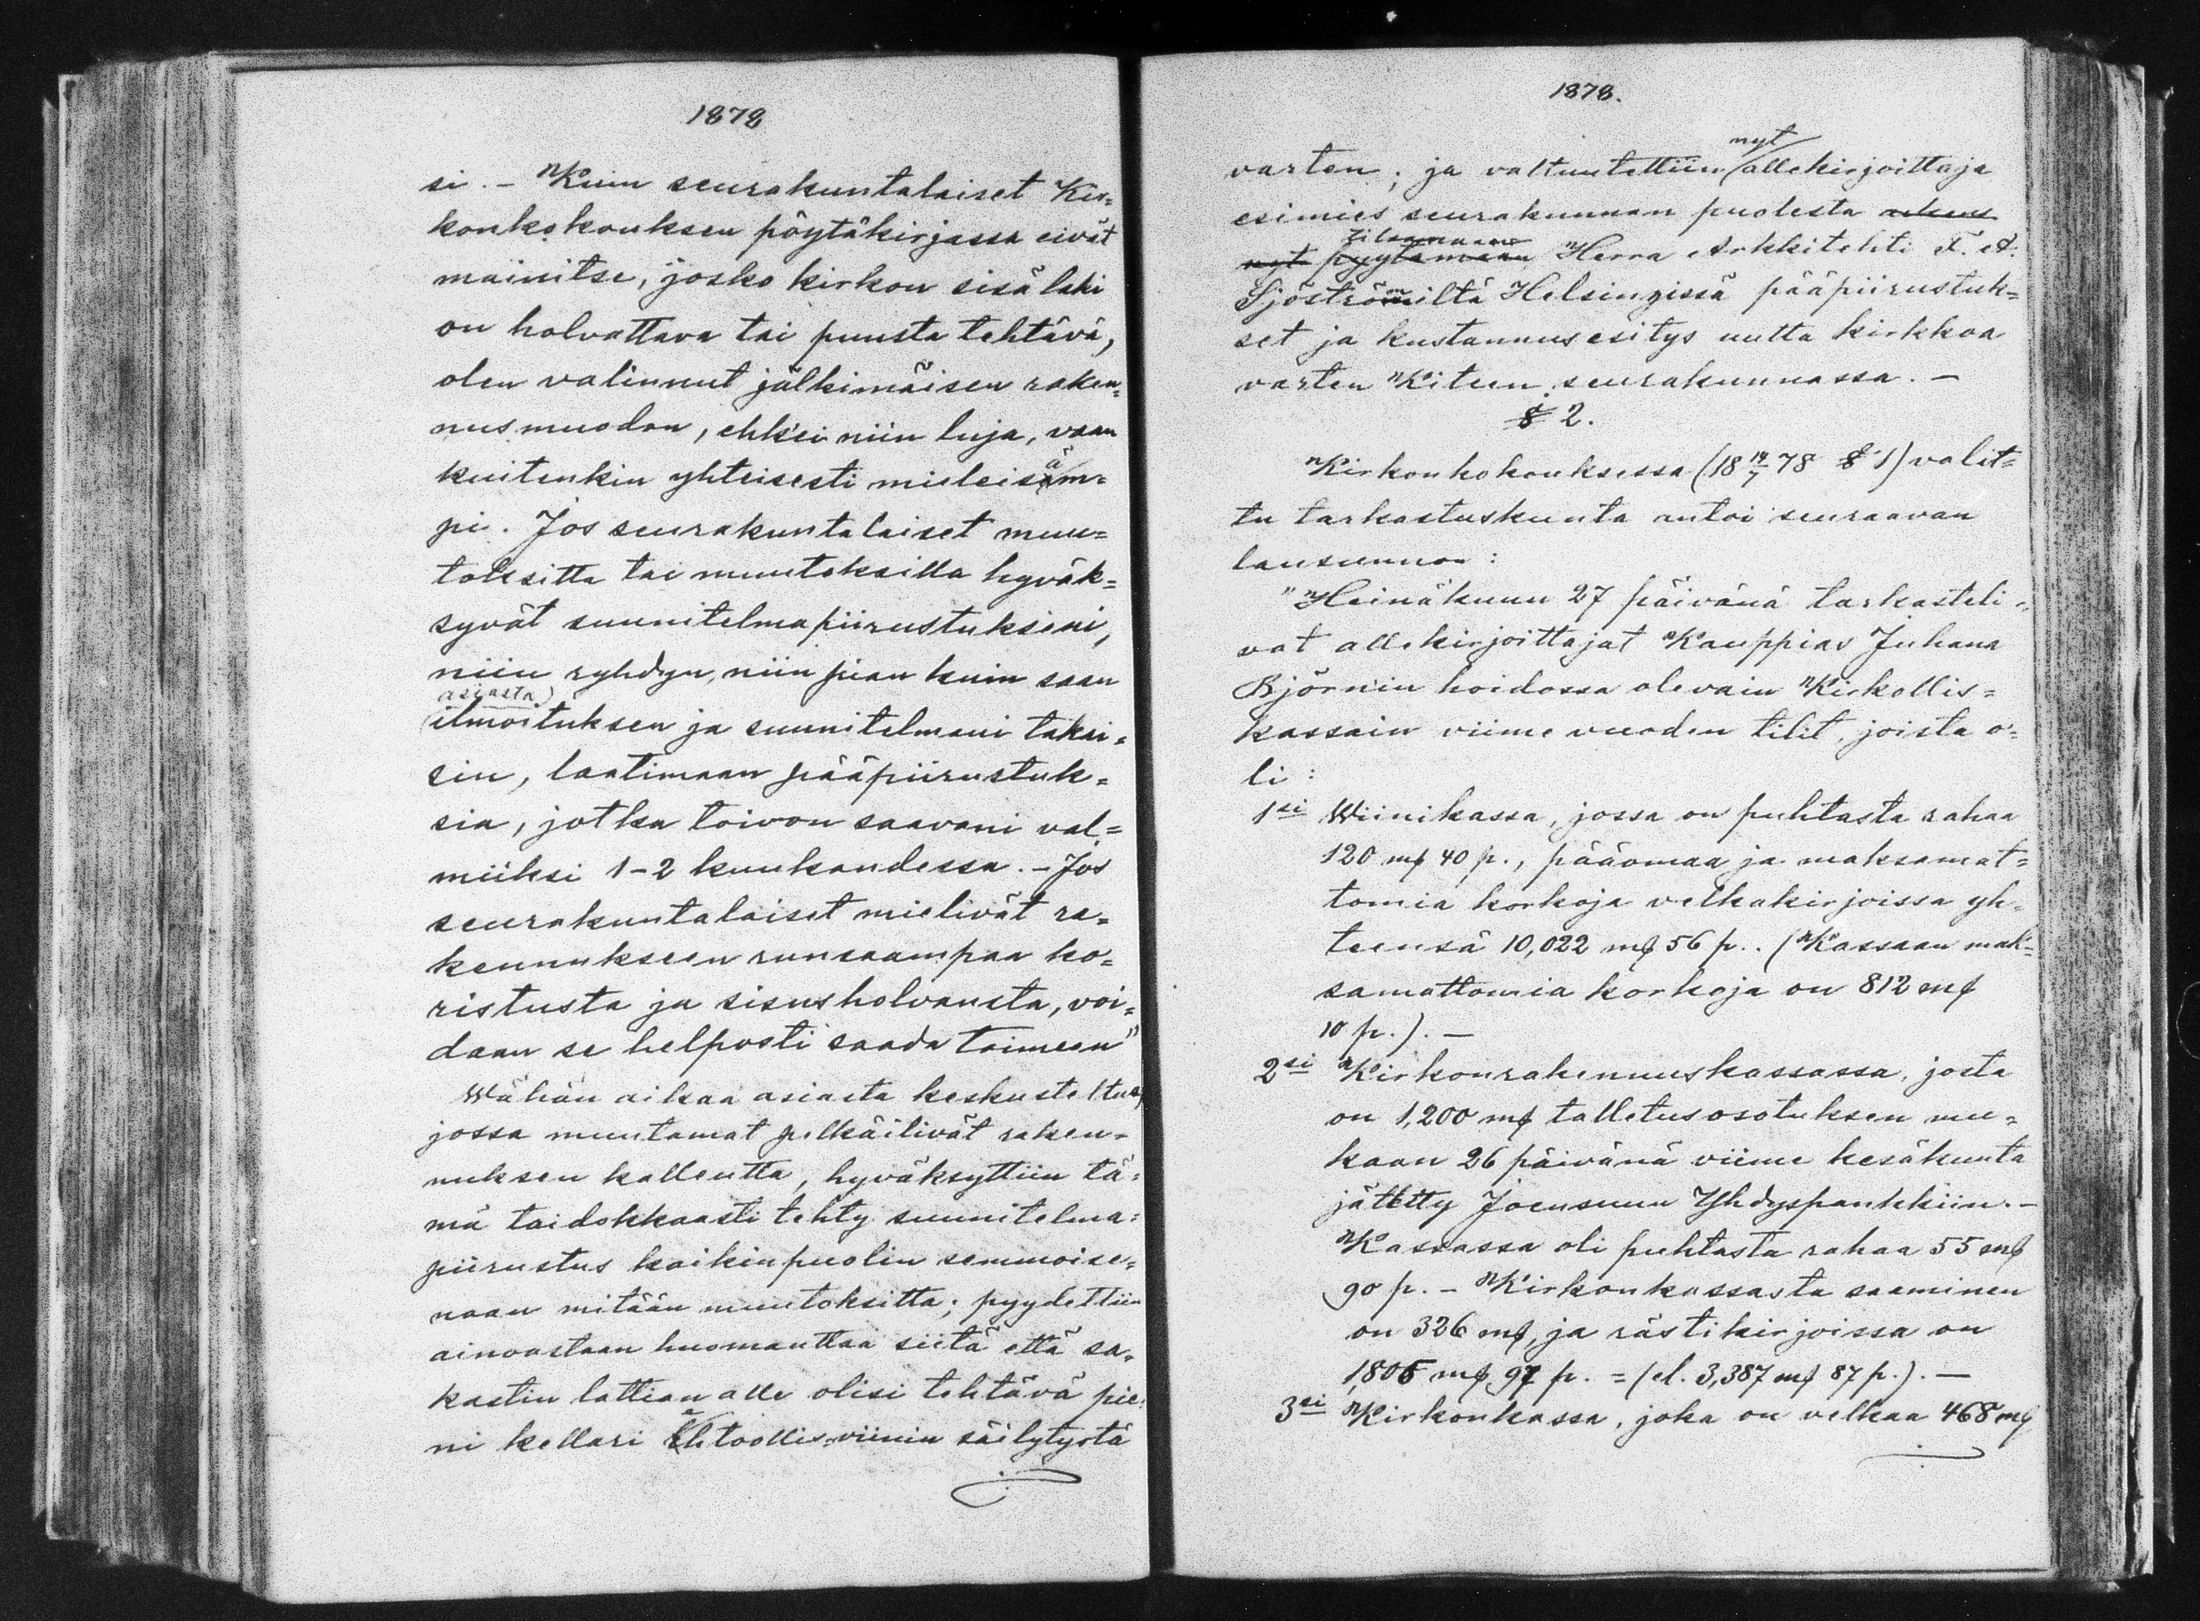 1878
si. – Kuin seurakuntalaiset Kir=
konkokouksen pöytäkirjassa eivät
mainitse, josko kirkon sisälaki
on holvattava tai puusta tehtävä,
olen valinnut jälkimäisen raken=
nusmuodon, ehk'ei niin luja, vaan
kuitenkin yhteisesti mieleisäm=
pi. Jos seurakuntalaiset muu=
toksitta tai muutoksilla hyväk=
syvät suunitelmapiirustukseni,
niin ryhdyn, niin pian kuin saan
asiasta
ilmoituksen ja suunitelmani takai=
sin, laatimaan pääpiirustuk=
sia, jotka toivon saavani val=
miiksi 1–2 kuukaudessa. – Jos
seurakuntalaiset mielivät ra=
kennukseen runsaampaa ko=
ristusta ja sisusholvausta, voi=
daan se helposti saada toimeen"
Wähän aikaa asiasta keskusteltua,
jossa muutamat pelkäilivät raken=
nuksen kalleutta, hyväksyttiin tä=
mä taidokkaasti tehty suunitelma=
piirustus kaikinpuolin semmoise=
naan mitään muutoksitta; pyydettiin
ainoastaan huomauttaa siitä että sa=
kastin lattian alle olisi tehtävä pie=
ni kellari Ehtoollis-viinin säilytystä
1878.
nyt
varten; ja valtuutettiin allekirjoittaja
esimies seurakunnan puolesta
nyt pyytämään Herra Arkkitehti F. A.
tilaamaan
Sjöströmiltä Helsingissä pääpiirustuk=
set ja kustannusesitys uutta kirkkoa
varten Kiteen seurakunnassa. –
§ 2.
Kirkonkokouksessa (18 14/7 78 § 1) valit=
tu tarkastuskunta antoi seuraavan
lausunnon:
"Heinäkuun 27 päivänä tarkasteli=
vat allekirjoittajat Kauppias Juhana
Björnin hoidossa olevain Kirkollis=
kassain viime vuoden tilit, joista o=
li:
1si Wiinikassa, jossa on puhtasta rahaa
120 mk 40 p., pääomaa ja maksamat=
tomia korkoja velkakirjoissa yh=
teensä 10,022 mk 56 p.. (Kassaan mak=
samattomia korkoja on 812 mk
10 p.). –
2si Kirkonrakennuskassassa, josta
on 1,200 mk talletusosotuksen mu=
kaan 26 päivänä viime kesäkuuta
jätetty Joensuun Yhdyspankkiin. –
Kassassa oli puhtasta rahaa 55 mk
90 p. – Kirkonkassasta saaminen
on 326 mk, ja rästikirjoissa on
1,805 mk 97 p. = (el. 3,387 mk 87 p.). –
3si Kirkonkassa, joka on velkaa 468 mk